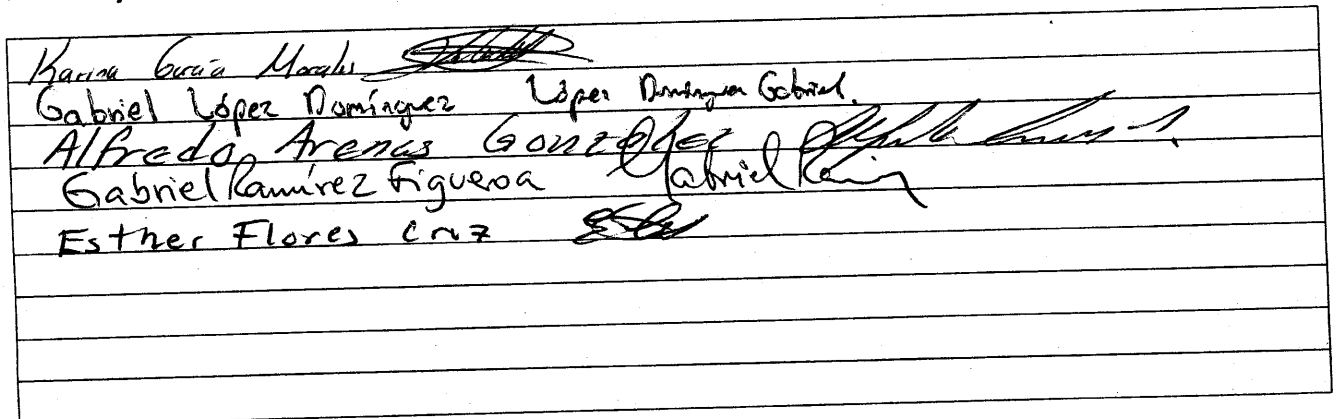 Karina García Morales
Gabriel López Domínguez López Domínguez Gabriel.
Alfredo Arenas González
Gabriel Ramírez Figueroa Gabriel
Esther Flores Cruz